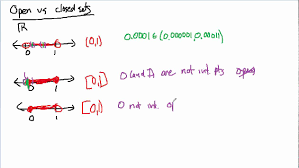 Open vs closed sets
ℝ
0 1 (0,1) 0.00016 (0.000001, 0.00011)
0 1 [0,1] 0 and 1 are not int pts
0 1 [0,1) 0 not int of